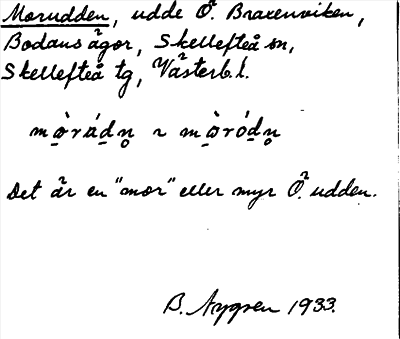 Morudden, udde Ö. Braxenviken,
Bodans ägor, Skellefteå sn,
Skellefteå tg, Västerb. l.
Det är en "mor" eller myr Ö. udden.
B. Nygren 1933.